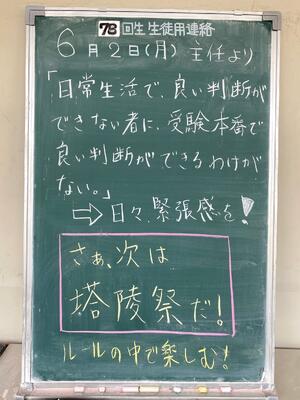 78 回生 生徒用連絡
6月2日(月) 主任より
「日常生活で、良い判断が
できない者に、受験本番で
良い判断ができるわけが
ない。」
⇨日々、緊張感を!
さぁ、次は
塔陵祭だ!
ルールの中で楽しむ!